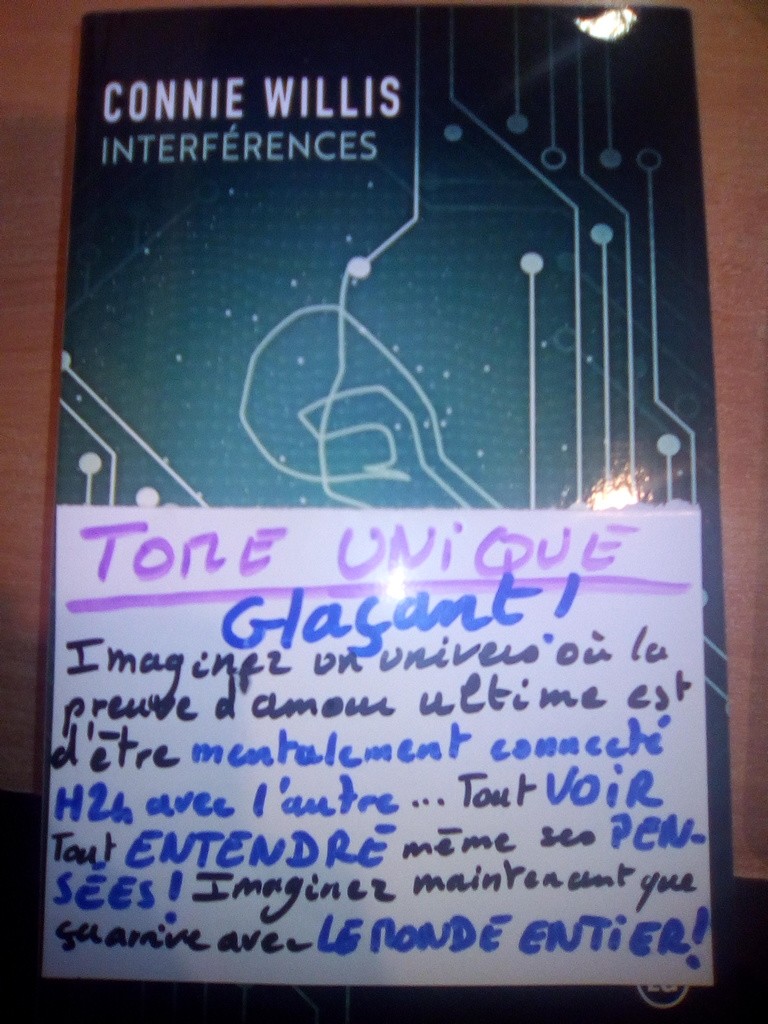 CONNIE WILLIS
INTERFÉRENCES
TOME UNIQUE
Glaçant!
Imaginez un univers où la
preuve d'amour ultime est
d'être mentalement connecté
H24 avec l'autre... Tout VOIR
Tout ENTENDRE même ses PEN-
SÉES! Imaginez maintenant que
ça arrive avec LE MONDE ENTIER!